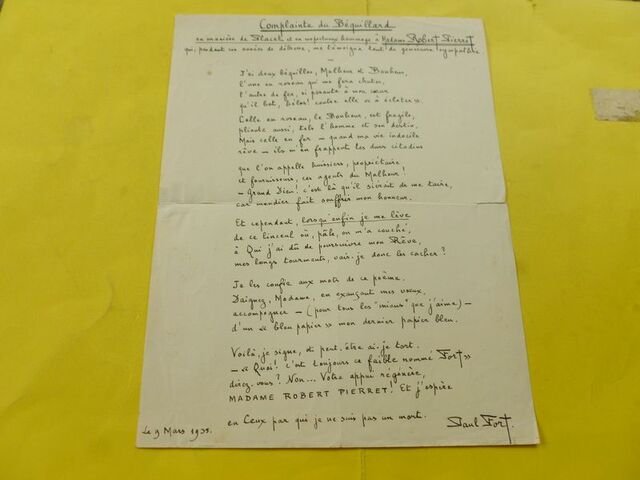 Complainte du Béquillard
en manière de Placet et en respectueux hommage à Madame Robert Pierret
qui, pendant ces années de détresse, me témoigna tant de généreuse sympathie
J'ai deux béquilles, Malheur et Bonheur,
l'une en roseau qui me fera chuter,
l'autre de fer, si pesante à mon cœur
qu'il bat, hélas! contre elle à éclater.
Celle en roseau, le Bonheur, est fragile,
pliante aussi, tels l'homme et son destin,
Mais celle en fer – quand ma vie indocile
rêve – ils m'en frappent les durs citadins
que l'on appelle huissiers, propriétaire
et fournisseurs, ces agents du Malheur!
– Grand Dieu! c'est là qu'il siérait de me taire,
car mendier fait souffrir mon honneur.
Et cependant, lorsqu'enfin je me lève
de ce linceul où, pâle, on m'a couché,
à Qui j'ai dû de poursuivre mon Rêve,
mes longs tourments, vais-je donc les cacher?
Je les confie aux mots de ce poème.
Daignez, Madame, en exauçant mes vœux,
accompagner – (pour tous les "miens" que j'aime) –
d'un « bleu papier » mon dernier papier bleu.
Voilà, je signe, et peut-être ai-je tort.
– « Quoi! c'est toujours ce faible nommé Fort »
direz-vous? Non... Votre appui régénère,
MADAME ROBERT PIERRET! Et j'espère
en Ceux par qui je ne suis pas un mort.
Le 9 Mars 1935.
Paul Fort.